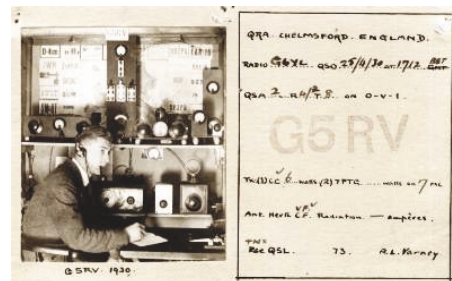 G5RV. 1930.
QRA. CHELMSFORD. ENGLAND.
RADIO QSO 25/4/30 AT 1712 GMT
QSA 2 R4/5 T.8 ON O-V-1.
G5RV
TX(1) CC 6 WATTS (2) TPTG .... WATTS ON 7 MC
Ant. Hertz Radiation — ampères.
PSE QSL. 73. R.L. Varney